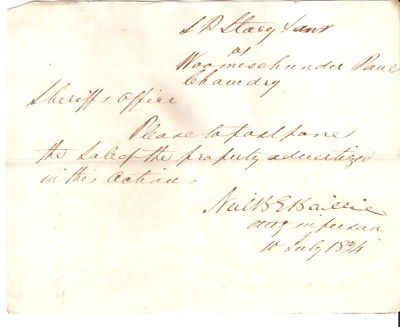 S R Stacy & ans
as
Woomeschunder Paul
Chowdry
Sheriff's Office
Please to postpone
the Sale of the property advertized
in this Action
Neil B E Baillie
atty in person
10 July 1834